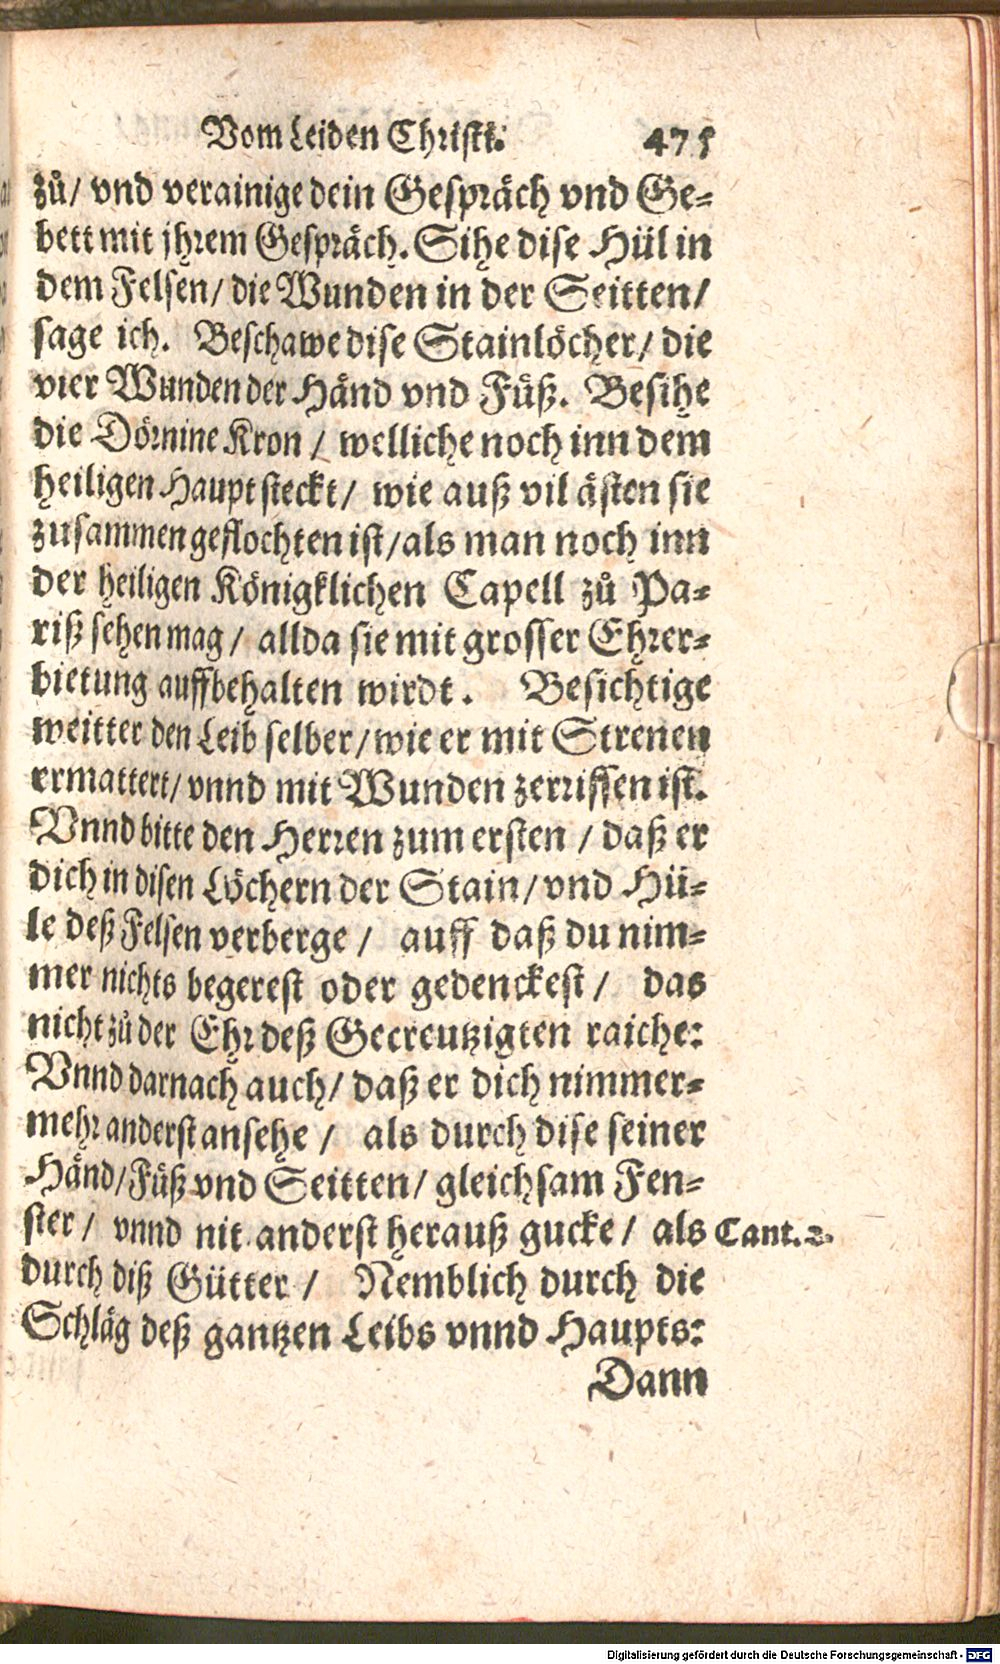 Vom Leiden Christi. 475
zů/ vnd verainige dein Gespräch vnd Ge-
bett mit jhrem Gespräch. Sihe dise Hül in
dem Felsen/ die Wunden in der Seitten/
sage ich. Beschawe dise Stainlöcher/ die
vier Wunden der Händ vnd Füß. Besihe
die Dörnine Kron / welliche noch inn dem
heiligen Haupt steckt/ wie auß vil ästen sie
zusammen geflochten ist/ als man noch inn
der heiligen Königklichen Capell zů Pa-
riß sehen mag / allda sie mit grosser Ehrer-
bietung auffbehalten wirdt. Besichtige
weitter den Leib selber/ wie er mit Strenen
ermattert/ vnnd mit Wunden zerrissen ist.
Vnnd bitte den Herren zum ersten / daß er
dich in disen Löchern der Stain/ vnd Hü-
le deß Felsen verberge / auff daß du nim-
mer nichts begerest oder gedenckest / das
nicht zů der Ehr deß Gecreutzigten raiche:
Vnnd darnach auch/ daß er dich nimmer-
mehr anderst ansehe / als durch dise seiner
Händ/ Füß vnd Seitten/ gleichsam Fen-
ster / vnnd nit anderst herauß gucke / als Cant. 2.
durch diß Gütter / Nemblich durch die
Schläg deß gantzen Leibs vnnd Haupts:
Dann
Digitalisierung gefördert durch die Deutsche Forschungsgemeinschaft - DFG